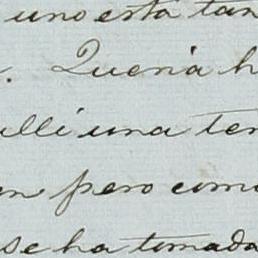 uno está tan
. Quería h
allí una ten
en pero como
se ha tomada